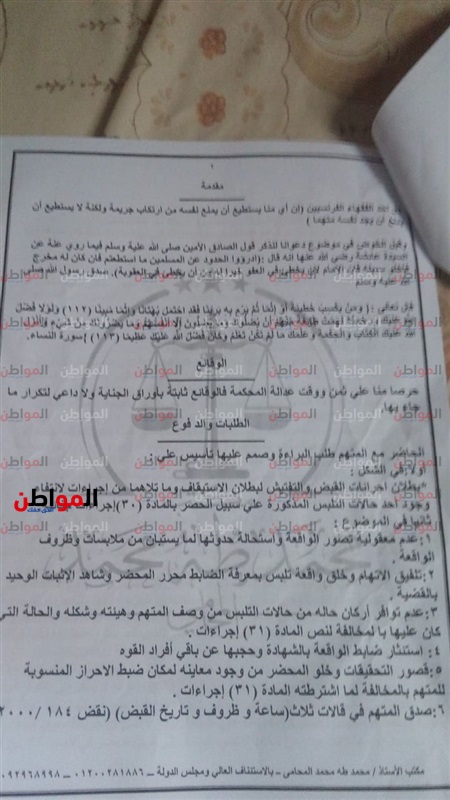 ١
مقدمة
أحد الفقهاء الفرنسيين (إن أي منا يستطيع أن يمنع نفسه من ارتكاب جريمة ولكنة لا يستطيع أن
يمنع أن يجد نفسه متهما )
وقبل الخوض في موضوع دعوانا لنذكر قول الصادق الأمين صلي الله علية وسلم فيما روي عنة عن
السيدة عائشة رضي الله عنها انه قال :(ادرووا الحدود عن المسلمين ما استطعتم فان كان له مخرج
فخلو سبيله فان الإمام لان يخطي في العفو خيرا له من أن يخطي في العقوبة). صدق رسول الله صلي
الله عليه وسلم
قال تعالى :{ ومن يكسب خطيئة أو إثما ثم يرم به بريئا فقد احتمل بهتانا وإثما مبينا (١١٢) ولولا فضل
الله عليك ورحمته لهمت طائفة منهم أن يضلوك وما يضلون إلا أنفسهم وما يضرونك من شيء وأنزل
الله عليك الكتاب والحكمة وعلمك ما لم تكن تعلم وكان فضل الله عليك عظيما (١١٣) }سورة النساء.
الوقائع
حرصا منا علي ثمن ووقت عدالة المحكمة فالوقائع ثابتة بأوراق الجناية ولا داعي لتكرار ما
جاء بها
الطلبات والدفوع
الحاضر مع المتهم طلب البراءة وصمم عليها تأسيس علي :
أولا: في الشكل :
*بطلان إجراءات القبض والتفتيش لبطلان الاستيقاف وما تلاهما من إجراءات لانتفاء
وجود احد حالات التلبس المذكورة علي سبيل الحصر بالمادة (٣٠)إجراءات
ثانيا في الموضوع :
١:عدم معقولية تصور الواقعة واستحالة حدوثها لما يستبان من ملابسات وظروف
الواقعة .
٢:تلفيق الاتهام وخلق واقعة تلبس بمعرفة الضابط محرر المحضر وشاهد الإثبات الوحيد
بالقضية .
٣:عدم توافر أركان حاله من حالات التلبس من وصف المتهم وهيئته وشكله والحالة التي
كان عليها بالمخالفة لنص المادة (٣١) إجراءات .
٤: استئثار ضابط الواقعة بالشهادة وحجبها عن باقي أفراد القوه
٥:قصور التحقيقات وخلو المحضر من وجود معاينه لمكان ضبط الاحراز المنسوبة
للمتهم بالمخالفة لما اشترطته المادة (٣١) إجراءات .
٦:صدق المتهم في قالات ثلاث(ساعة و ظروف و تاريخ القبض) (نقض ١٨٤ /٢٠٠٠
مكتب الأستاذ / محمد طه محمد المحامى – بالاستئناف العالي ومجلس الدولة – ٠١٢٠٠٢٨١٨٨٦ – ٠٩٢٩٦٨٩٩٨
المواطن
محمد طه محمد